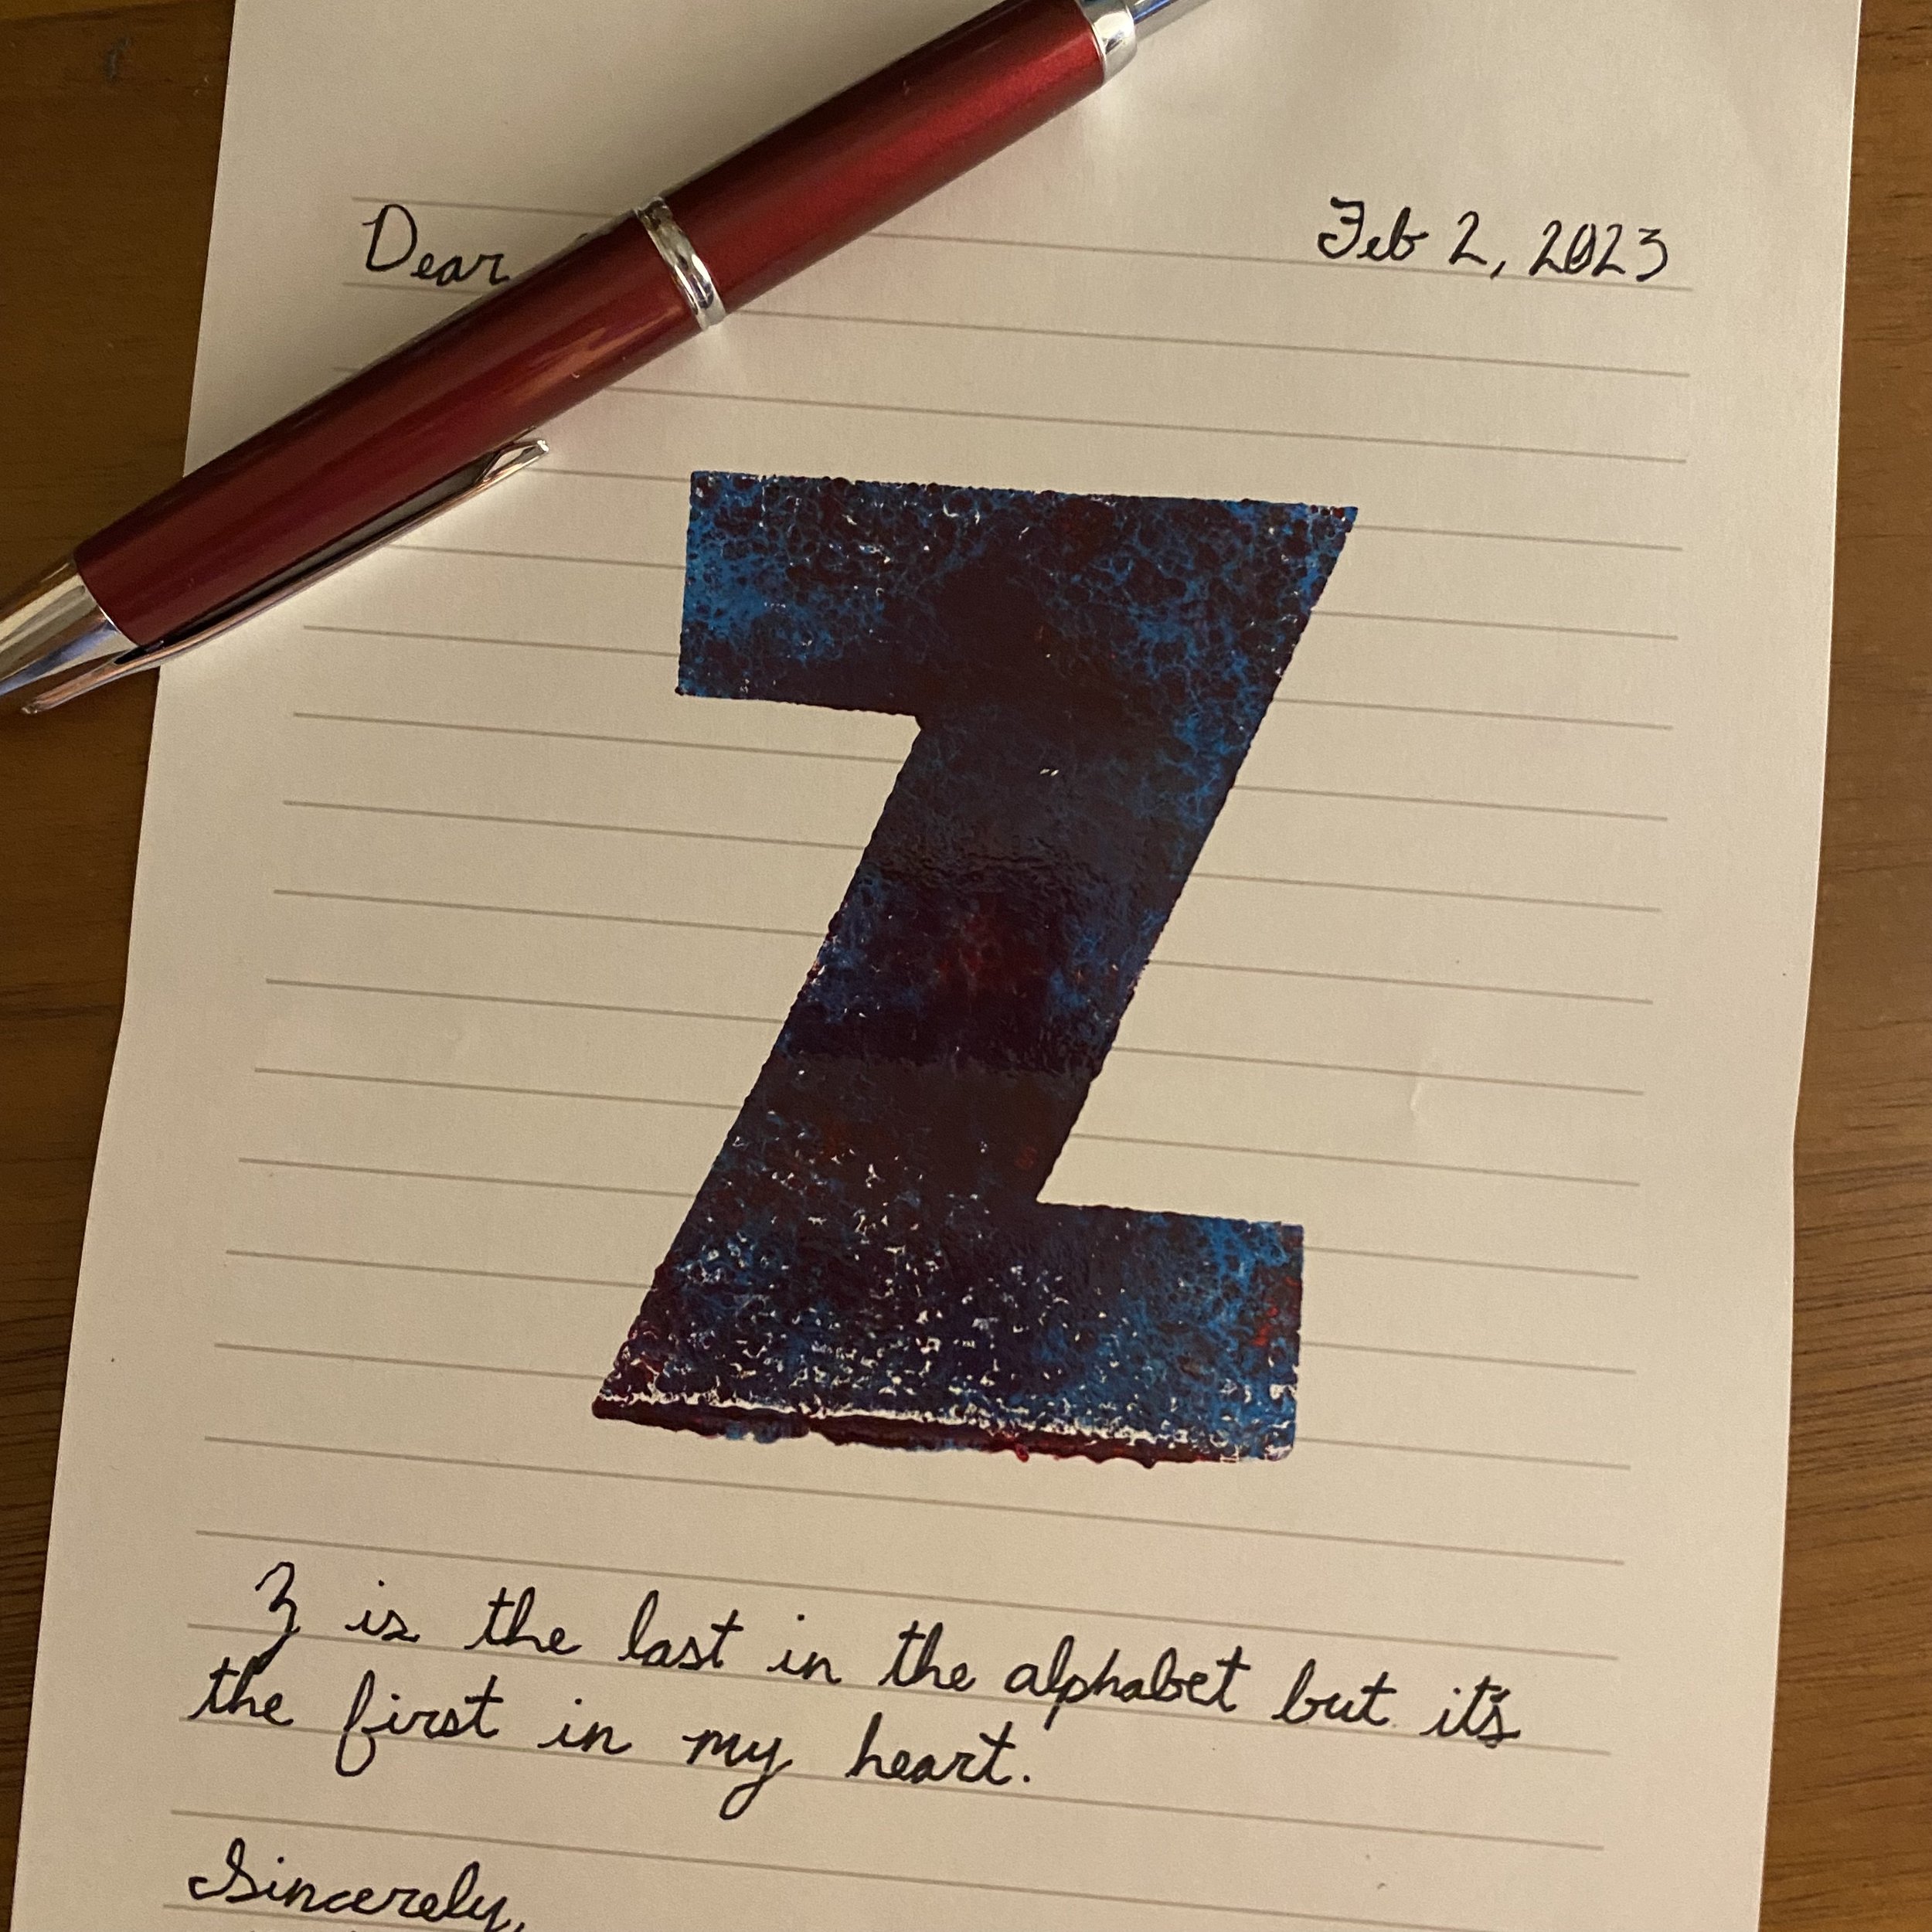 Dear
Feb 2, 2023
Z
Z is the last in the alphabet but it's
the first in my heart.
Sincerely,